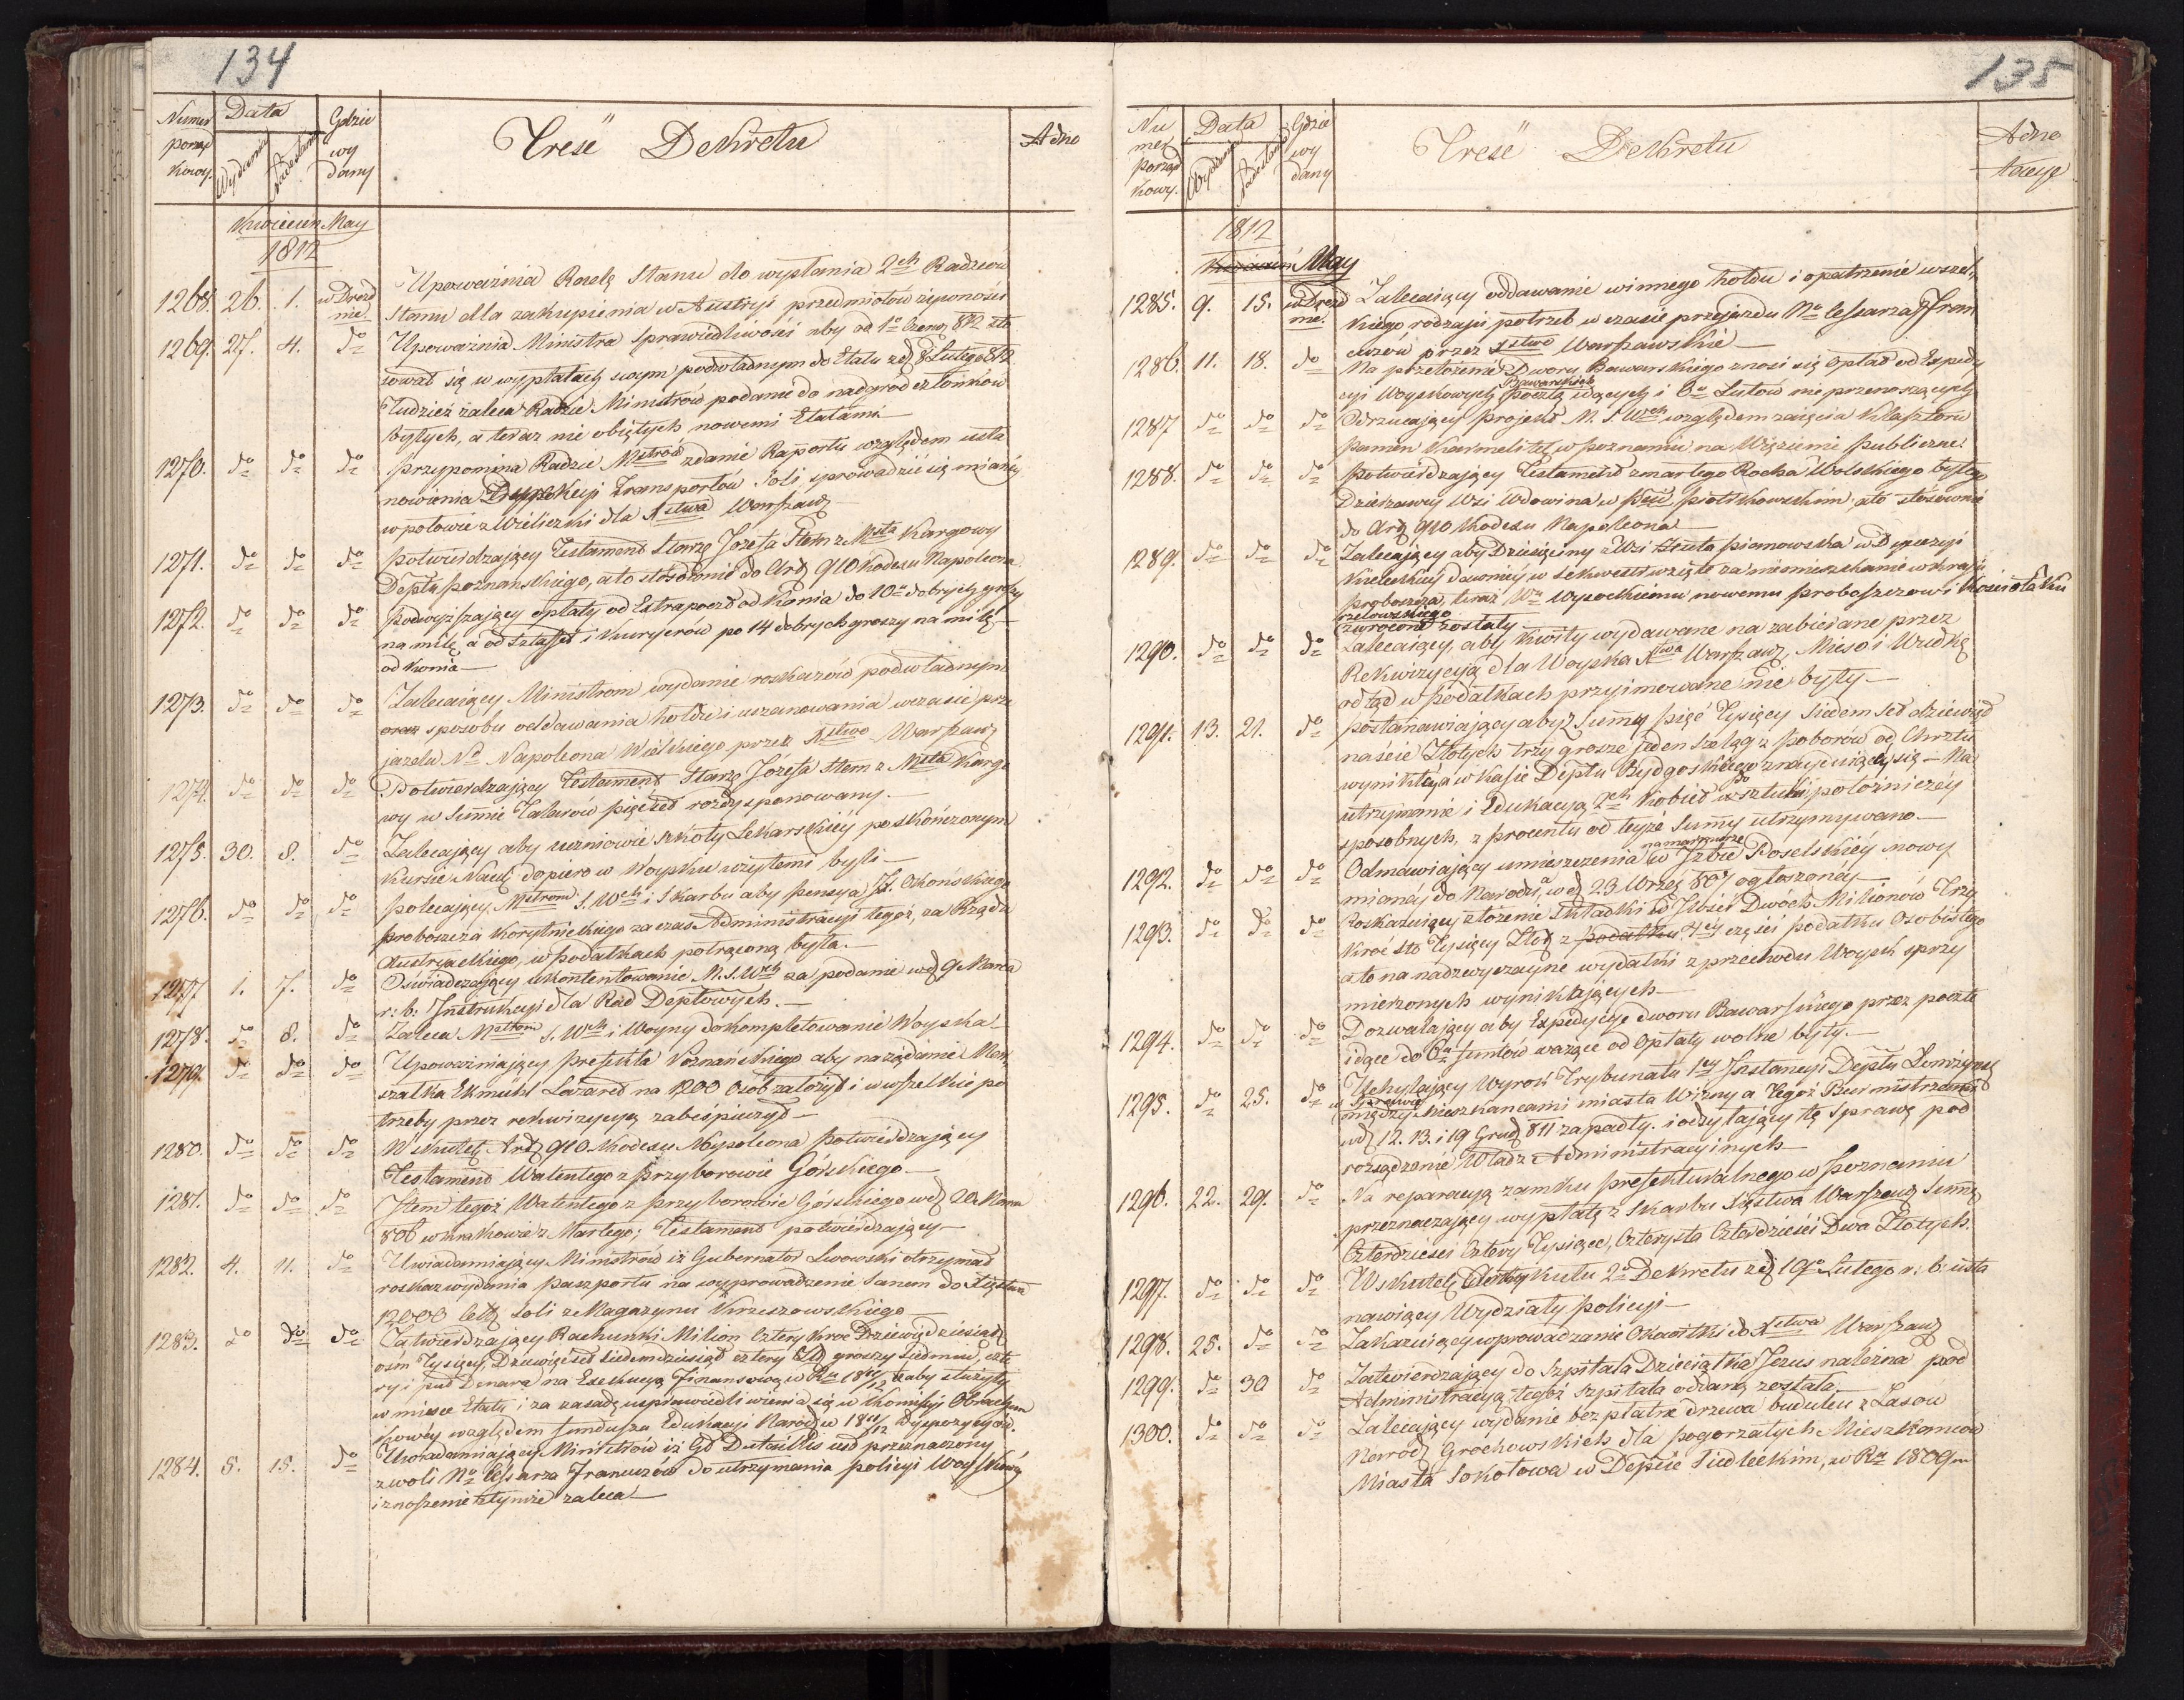 134
Numer porząd kowy.
Data
Wydania
Nadesłania
Gdzie wy dany
Treść Dekretu
Adno
Kwiecień May
1812
1268. 26. 1. w Drezd nie. Upoważnia Radę Stanu do wysłania 2ch Radzców
Stanu dla zakupienia w Austryi przedmiotów żywności
1269. 27. 4. do Upoważnia Ministra Sprawiedliwości aby od 1o Czerw 812 sto
sował się w wypłatach swym podwładnym do Etatu zd 8 Lutego 812
Tudzież zaleca Radzie Ministrów podanie do nadgród członków
byłych, a teraz nie objętych nowemi Etatami
1270. do do do Przypomina Radzie Mstrów zdanie Rapportu względem usta
nowienia Transportów Soli, sprowadzić się mianéy
w połowie z Wieliczki dla Xstwa Warszaw
1271. do do do Potwierdzający Testament Starzę Jozefa Item z Msta Kargowy
Deptu Poznańskiego, a to stosownie do Art 910 Kodexu Napoleona
1272. do do do Podwyższający opłaty od Extrapoczt od Konia do 10u dobrych groszy
na milę a od Sztafet i Kuryerów po 14 dobrych groszy na milę
od Konia
1273. do do do Zalecaiący Ministrom wydanie roskazów podwładnym
oraz sposobu oddawania hołdu i uszanowania wczasie prze
jazdu No Napoleona Wielkiego przez Xstwo Warszaw
1274. do do do Potwierdzający Testament Starzę Jozefa Item z Msta Kargo
wy w Summie Talarow pięćset rozdysponowany.
1275. 30. 8. do Zalecający aby uczniowie Szkoły Lekarskiéy po skończonym
Kursie Nauk dopiero w Woysku użytemi byli
1276. do do do Polecający Mstrom S. Wch i Skarbu aby pensya JX. Okońskiego
Proboszcza Korytnickiego za czas Administracyi tegoż, za Rządu
Austryackiego, w podatkach potrąconą była.
1277 1. 7. do Oświadczający ukontentowanie M. S. Wch za podanie wd 9 Marca
r: b: Instrukcyi dla Rad Deptowych.
1278. do 8. do Zaleca Mstrom S. Wch i Woyny dokompletowanie Woyska
1279. do do do Upoważniający Prefekta Poznańskiego aby na żądanie Mar
szałka Ekmühl Lazaret na 1200 Osób założył i w wszelkie po
trzeby przez rekwizycyą zabeśpieczył
1280. do do do W skutek Art 910 Kodexu Napoleona potwierdzający
Testament Walentego z Przyborowie Górskiego
1281. do do do Item tegoż Walentego z Przyborowie Górskiego wd 20
806 w Krakowie z Marłego; Testament potwierdzający
1282. 4. 11. do Uwiadamiający Ministrów iż Gubernator Lwowski otrzymał
roskaz wydania paszportu na wyprowadzenie Sanem do Xięstwa
12000 Cetn soli z Magazynu Krzeszowskiego
1283. do do do Zatwierdzający Rachunki Milion Cztery Kroć Dziewięćdziesiąt
osm Tysięcy, Dziewięćset siedmdziesiąt cztery Zł groszy siedmiu, czte
ry i puł Denara na Exekucyą Finansową w Ru 1811/12 aby służyły
w miesce Etatu i za zasadę usprawiedliwienia się w Kommisyi Obrachun
kowéy względem funduszu Edukacyi Narod w 1811/12
1284. 5. 15. do Uwiadamiający Ministrów iż Gł Dutaillis jest przeznaczony
z woli No Cesarza Francuzów do utrzymania policyi Woyskowéy
i znoszenie się z tymże zaleca
135
Nu mer porząd kowy.
Data
Wydania
Nadesłania
Gdzie wy dany
Treść Dekretu
Adno tacye
1812
Kwiecień May
1285. 9. 15. w Drezd nie. Zalecaiący oddawanie winnego hołdu i opatrzenie wszel
kiego rodzaju potrzeb w czasie przejazdu No Cesarza Fran
cuzów przez Xstwo Warszawskie
1286. 11. 18. do Na przełożenie Dworu Bawarskiego znosi się opłat od Expedy
cyi Woyskowych Bawarskich pocztą idących i 6u Lutów nie przenoszących
1287 do do do Odrzucający projekt M. S. Wch względem zajęcia Klasztoru
Panien Karmelitek w Poznaniu na Więzienie publiczne.
1288. do do do Potwierdzający Testament zmarłego Rocha Wolskiego byłego
Dzierzawcy Wsi Wdowina w Pcie Piotrkowskim, a to stosownie
do Art 910 Kodexu Napoleona
1289. do do do Zalecający aby Dziesięciny z Wsi Huta Pianowska w Dyecezyi
Kieleckiéy dawniéy w sekwestr wzięte za niemieszkanie w kraju
Proboszcza, teraz Wu Wysockiemu nowemu Proboszczowi Kościoła Ku
rzelowskiego zwrócone zostały
1290. do do do Zalecaiący, aby Kwity wydawane na zabierane przez
Rekwizycyją dla Woyska Xstwa Warszaw, Mieso i Wudkę
odtąd w podatkach przyjmowane nie były
1291. 13. 21. do Postanawiający aby z Summy pięć Tysięcy Siedem set dziewięt
naście Złotych trzy grosze jeden szeląg z poborów od Chrztu
wynikłéy a w Kassie Deptu Bydgoskiego znayduiącéy się – Na
utrzymanie i Edukacyą 2ch Kobiet do sztuki położniczéy
sposobnych, z procentu od teyże Summy utrzymywano.
1292. do do do Odmawiający umieszczenia na marmurze w Izbie Poselskiéy mowy
mianéy do Narodu, wd 23 Wrześ 807 ogłoszonéy
1293. do do do Roskazuiący złożenie składki do Ilości Dwóch Milionów Trzy
kroć sto Tysięcy Złot z podatku 4éy części podatku Osobistego
a to na nadzwyczayne wydatki z przechodu Woysk sprzy
mierzonych wynikłających
1294. do do do Dozwalający aby Expedycye dworu Bawarskiego przez poczte
idące do 6u funtów ważące od Opłaty wolne były.
1295. do 25. do Uchylający Wyrok Trybunału 1éy Instancyi Deptu Łomżyns
w Sprawie między Mieszkancami miasta Wizny a tegoż Burmistrzem
wd 12. 13. i 19 Grud 811 zapadły. i odsyłający tę Sprawę pod
rozsądzenie Władz Administracyinych
1296. 22. 29. do Na reparacyą zamku prefekturalnego w Poznaniu
przeznaczający wypłatę z Skarbu Xięstwa Warszaw Summę
Czterdzieści Cztery Tysiące, Czterysta Czterdzieści Dwa Złotych
1297. do do do W skutek Artykułu 2o Dekretu zd 19o Lutego r: b: usta
nawiący Wydziały policyi
1298. 25. do do Zakazuiący wprowadzanie Okowitki do Xstwa Warszaw
1299. do 30 do Zatwierdzający do Szpitala Dzieciątka Jezus należna pod
Administracyą tegoż szpitala oddaną została
1300. do do do Zalecający wydanie bezpłatne drzewa budulcu z Lasów
Narod Grochowskich dla pogorzałych Mieszkancow
Miasta Sokołowa w Depcie Siedleckim, w Ru 1809m